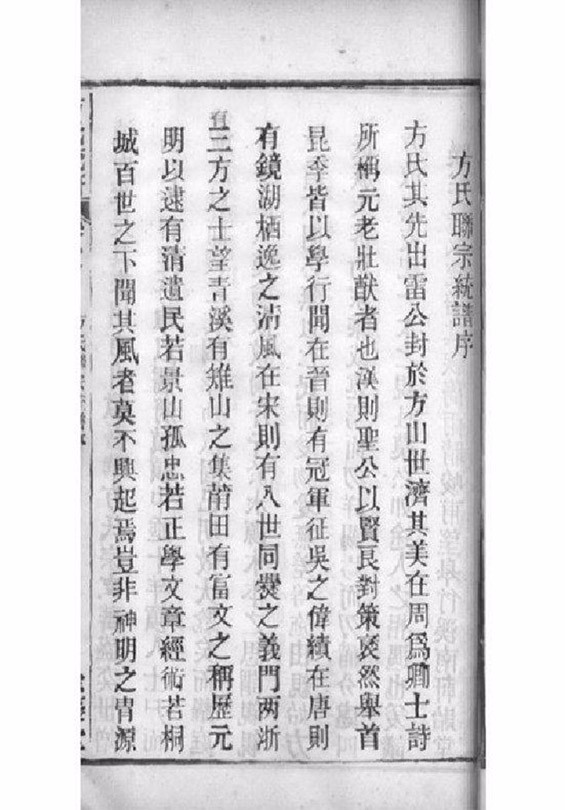 方氏聯宗統譜序
方氏其先出雷公封於方山世濟其美在周爲卿士詩
所稱元老壯猷者也漢則聖公以賢良對策裒然舉首
昆季皆以學行聞在晉則有冠軍征吳之偉績在唐則
有鏡湖栖逸之淸風在宋則有八世同爨之義門兩浙
有三方之士望青溪有雉山之集莆田有富文之稱歷元
明以逮有清遺民若景山孤忠若正學文章經術若桐
城百世之下聞其風者莫不興起焉豈非神明之胄源